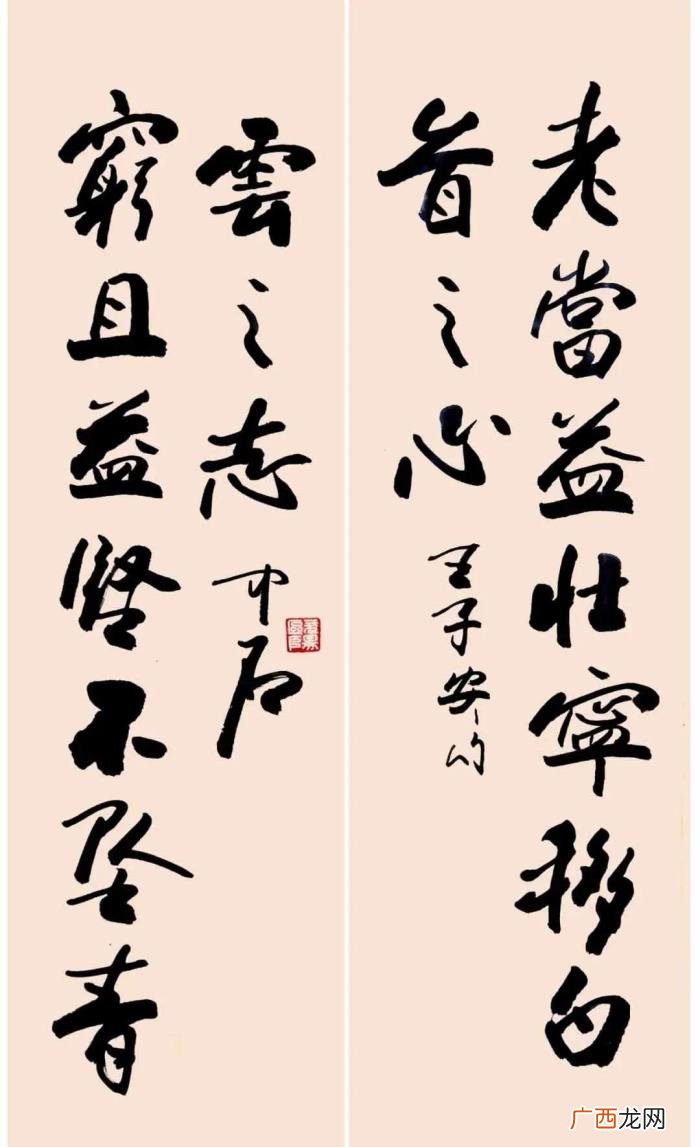 老當益壮寧移白
首之心
王子安句
窮且益堅不坠青
雲之志
中石
广西龙网